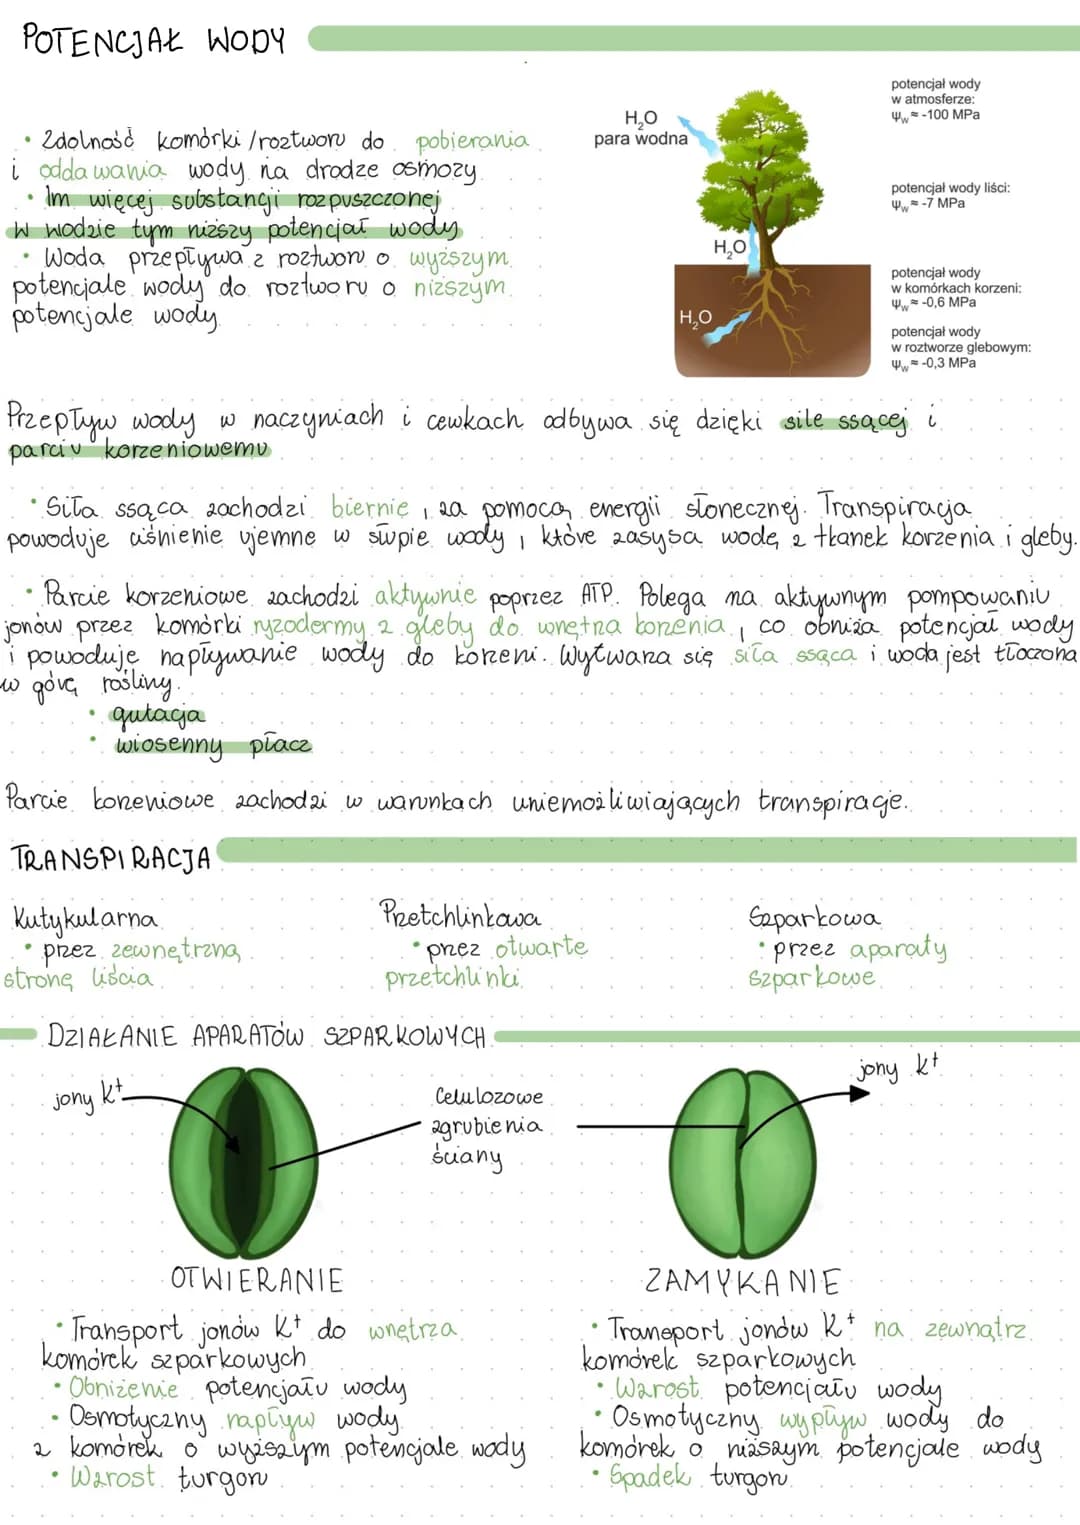 POTENCJAŁ WODY
• Zdolność komórki/roztworu do pobierania
i oddawania wody na drodze osmozy.
• Im więcej substancji rozpuszczonej
w wodzie tym niższy potencjał wody
• Woda przepływa z roztworu o wyższym
potencjale wody do roztworu o niższym
potencjale wody.
H₂O
para wodna
H₂O
H₂O
potencjał wody
w atmosferze:
Ψw ≈ -100 MPa
potencjał wody liści:
Ψw ≈ -7 MPa
potencjał wody
w komórkach korzeni:
Ψw ≈ -0,6 MPa
potencjał wody
w roztworze glebowym:
Ψw ≈ -0,3 MPa
Przepływ wody w naczyniach i cewkach odbywa się dzięki sile ssącej i
parciu korzeniowemu
• Siła ssąca zachodzi biernie, za pomocą energii słonecznej. Transpiracja
powoduje ciśnienie ujemne w słupie wody, które zasysa wodę z tkanek korzenia i gleby.
• Parcie korzeniowe zachodzi aktywnie poprzez ATP. Polega na aktywnym pompowaniu
jonów przez komórki ryzodermy z gleby do wnętrza korzenia, co obniża potencjał wody
i powoduje napływanie wody do korzeni. Wytwarza się siła ssąca i woda jest tłoczona
w górę rośliny.
• gutacja
• wiosenny płacz
Parcie korzeniowe zachodzi w warunkach uniemożliwiających transpirację.
TRANSPIRACJA
Kutykularna
• przez zewnętrzną
stronę liścia
Przetchlinkowa
• przez otwarte
przetchlinki
Szparkowa
• przez aparaty
szparkowe
DZIAŁANIE APARATÓW SZPARKOWYCH
jony K⁺
Celulozowe
zgrubienia
ściany
jony K⁺
OTWIERANIE
• Transport jonów K⁺ do wnętrza
komórek szparkowych
• Obniżenie potencjału wody
• Osmotyczny napływ wody
z komórek o wyższym potencjale wody
• Wzrost turgoru
ZAMYKANIE
• Transport jonów K⁺ na zewnątrz
komórek szparkowych
• Wzrost potencjału wody
• Osmotyczny wypływ wody do
komórek o niższym potencjale wody
• Spadek turgoru